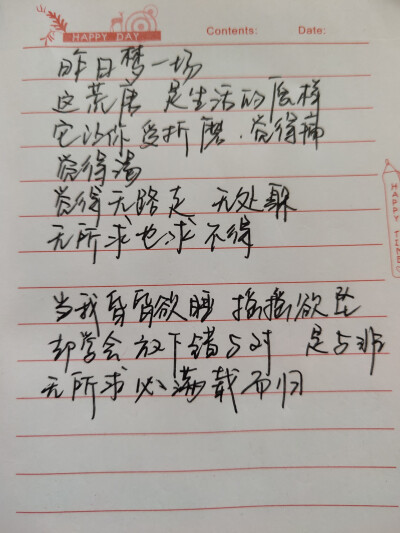 HAPPY DAY
Contents: Date:
昨日梦一场
这荒唐 是生活的原样
它让你受折磨 觉得痛
觉得烫
觉得无路走 无处躲
无所求也求不得
当我昏昏欲睡 摇摇欲坠
却学会放下错与对 是与非
无所求必满载而归
HAPPY